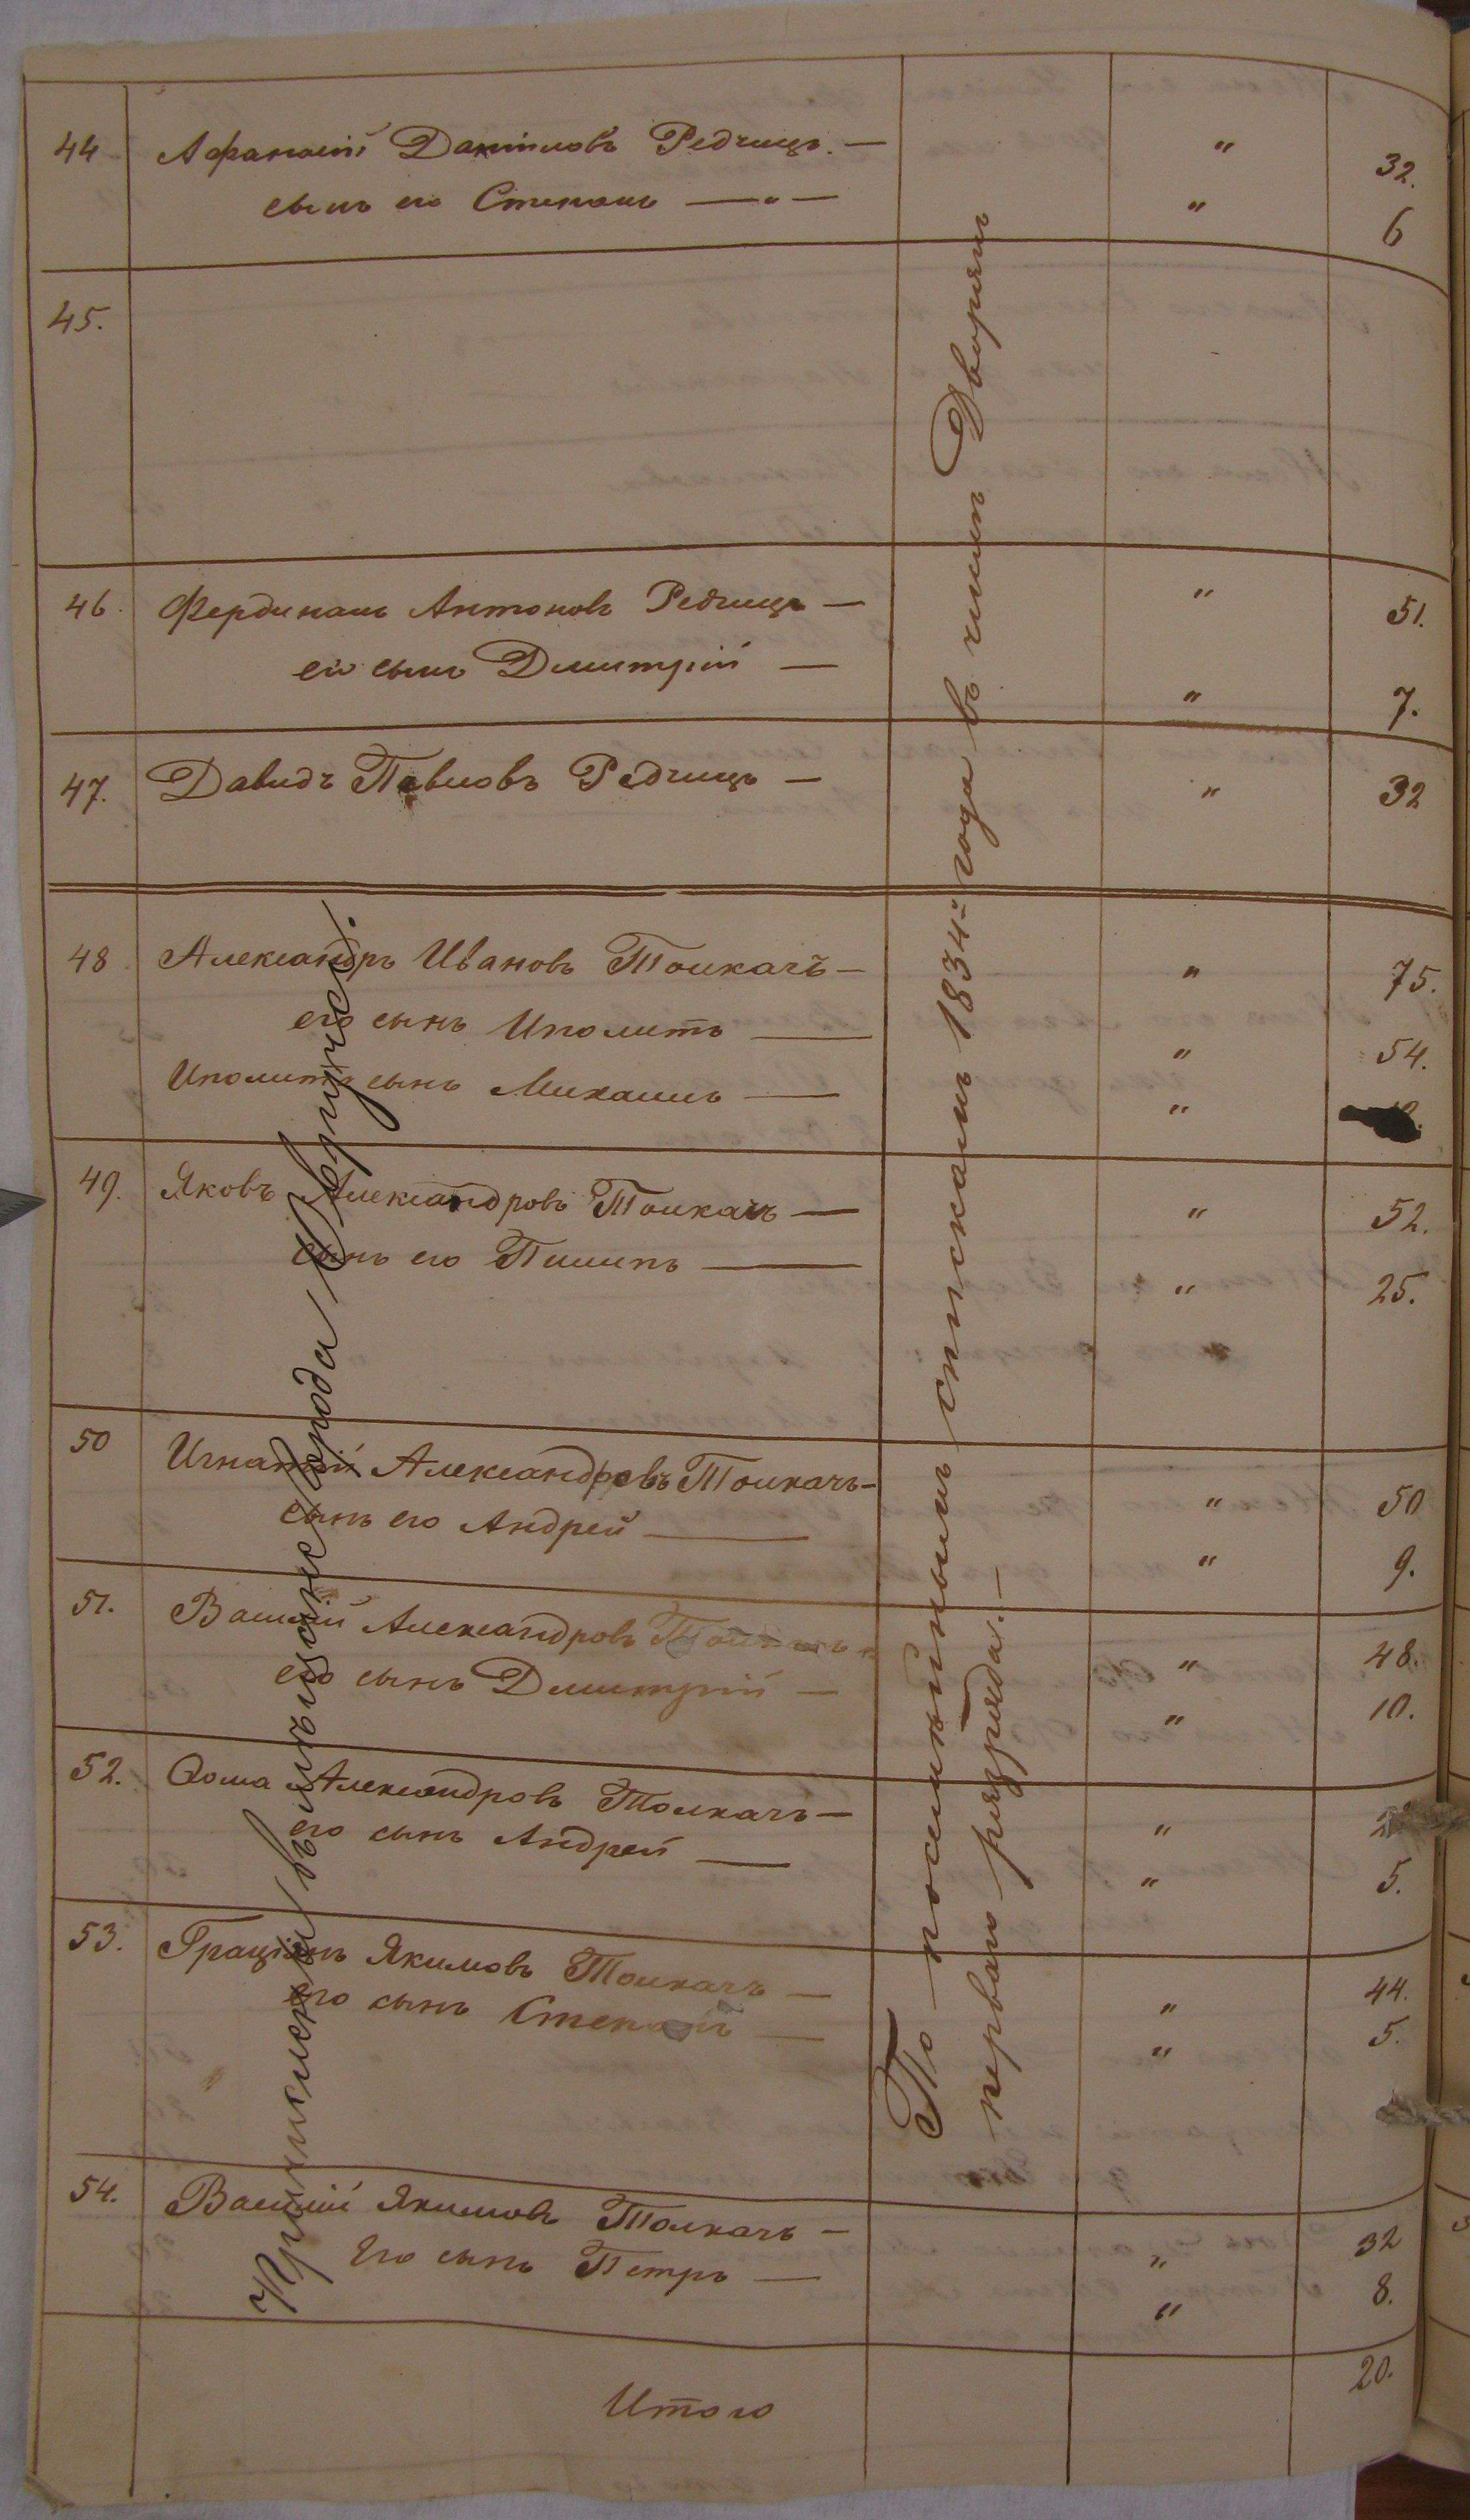 44 Афанасій Даниловъ Редчицъ. — " 32.
сынъ его Степанъ — " — " 6
45.
46. Фердинанъ Антоновъ Редчицъ — " 51.
его сынъ Дмитрій — " 7.
47. Давидъ Павловъ Редчицъ — " 32
48 Александръ Ивановъ Толкачъ — " 75.
его сынъ Иполитъ — " 54.
Иполита сынъ Михаилъ — "
49. Яковъ Александровъ Толкачъ — " 52.
сынъ его Пилипъ — " 25.
50 Игнатій Александровъ Толкачъ — " 50
сынъ его Андрей — " 9.
51. Василій Александровъ Толкачъ — " 48.
его сынъ Дмитрій — " 10.
52. Ѳома Александровъ Толкачъ — "
его сынъ Андрей — " 5.
53. Граціянъ Якимовъ Толкачъ — " 44.
его сынъ Степанъ — " 5.
54. Василій Якимовъ Толкачъ — " 32
Его сынъ Петръ — " 8.
Итого 20.
Причислены въ мѣщане города Овручее.
По посемѣйнымъ спискамъ 1834: года въ числѣ Дворянъ
перваго разряда. —